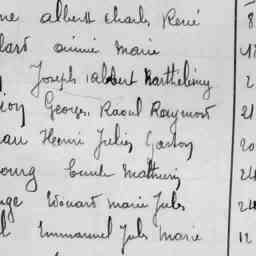 ne albert charles René 8
lard aimée Marie
Joseph albert Barthélemy 2
Georges Raoul Raymond 21
eau Henri Jules Gaston 20
ourg Emile Mathurin 24
uge Edouard Marie Jules 24
l Emmanuel Jules Marie 12